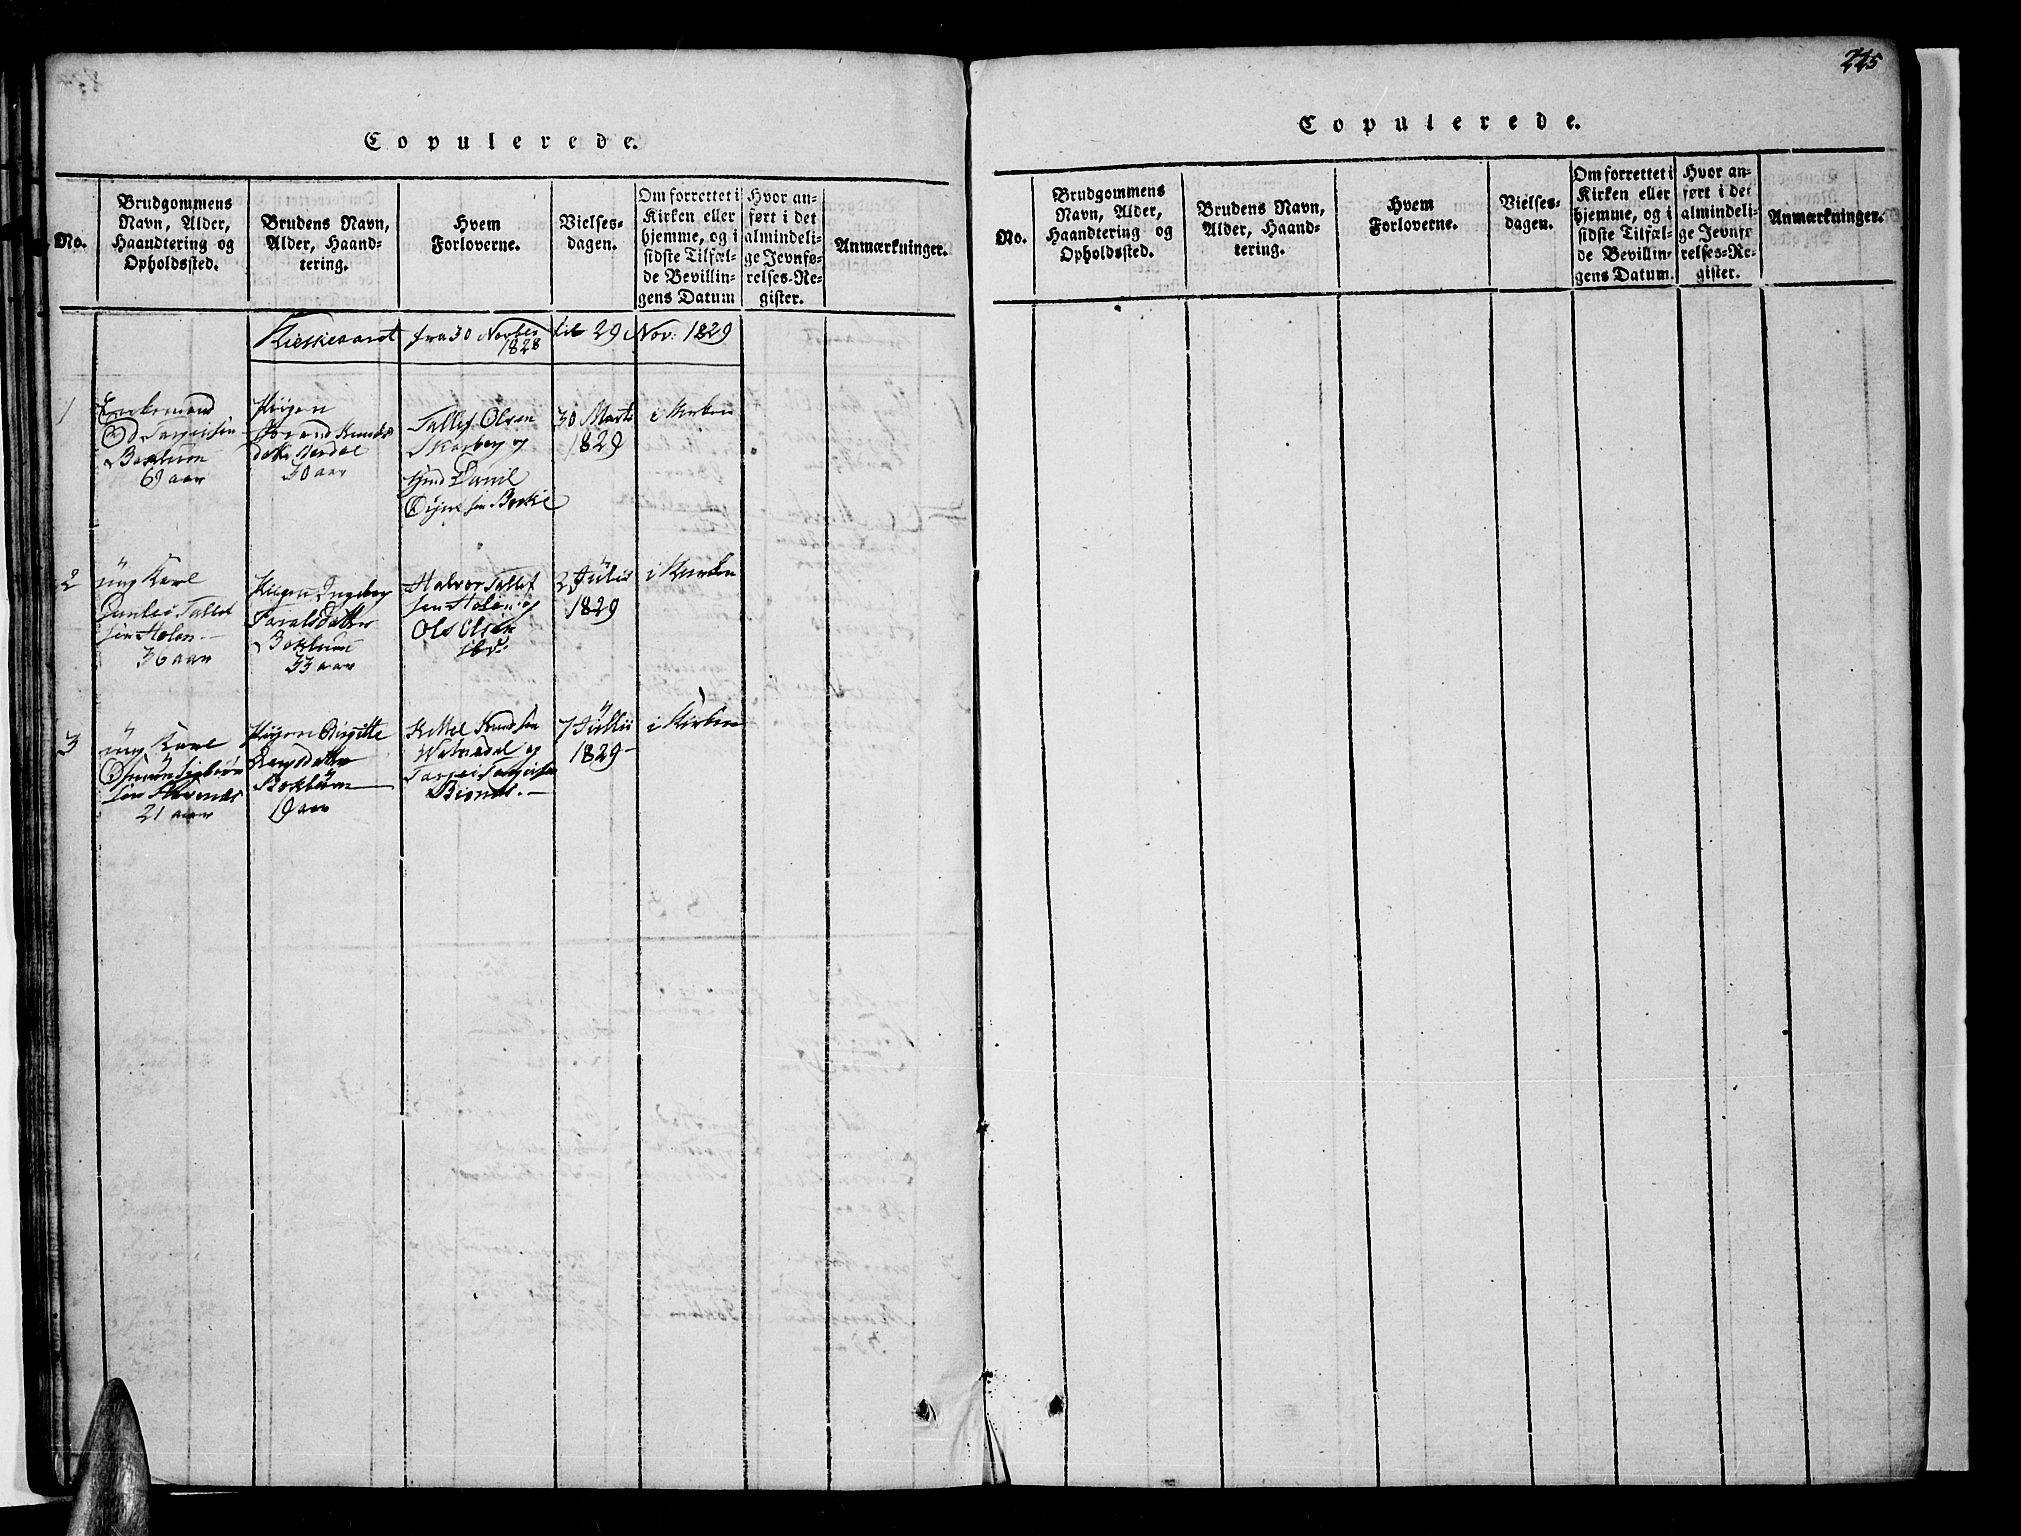 Copulerede.
No.
Brudgommens
Navn, Alder,
Haandtering og
Opholdssted.
Brudens Navn,
Alder, Haand-
tering.
Hvem
Forloverne.
Vielses-
dagen.
Om forrettet i
Kirken eller
hjemme, og i
sidste Tilfæl-
de Bevillin-
gens Datum
Hvor an-
ført i det
almindeli-
ge Jevnfø-
relses-Re-
gister.
Anmærkninger.
Kirkeaaret fra 30 Novber 1828 til 29 Nov: 1829
1
Enkemand
Od Targeisen
Boxlum
69 aar
Pigen
Jorand Knuds
datter
30 aar
Tallef Olsen
Skarberg og
Daniel
sen
30 Marts
1829
i Kirken
2
ung Karl
Tallef
sen Holen
36 aar
Pigen Ingebor
Taralsdatter
Boxlum
33 aar
Halvor Tallef
sen Holen og
Ols Olsen
ibd:
Julii
1829
i Kirken
3
ung Karl
sen
21 aar
Pigen Birgitte
datter
Boxlum
19 aar
Kittel Knudsen
og
Targei Targeisen
7 Julii
1829
i Kirken
225
Copulerede.
No.
Brudgommens
Navn, Alder,
Haandtering og
Opholdssted.
Brudens Navn,
Alder, Haand-
tering.
Hvem
Forloverne.
Vielses-
dagen.
Om forrettet i
Kirken eller
hjemme, og i
sidste Tilfæl-
de Bevillin-
gens Datum.
Hvor an-
ført i det
almindeli-
ge Jevnfø-
relses-Re-
gister.
Anmærkninger.